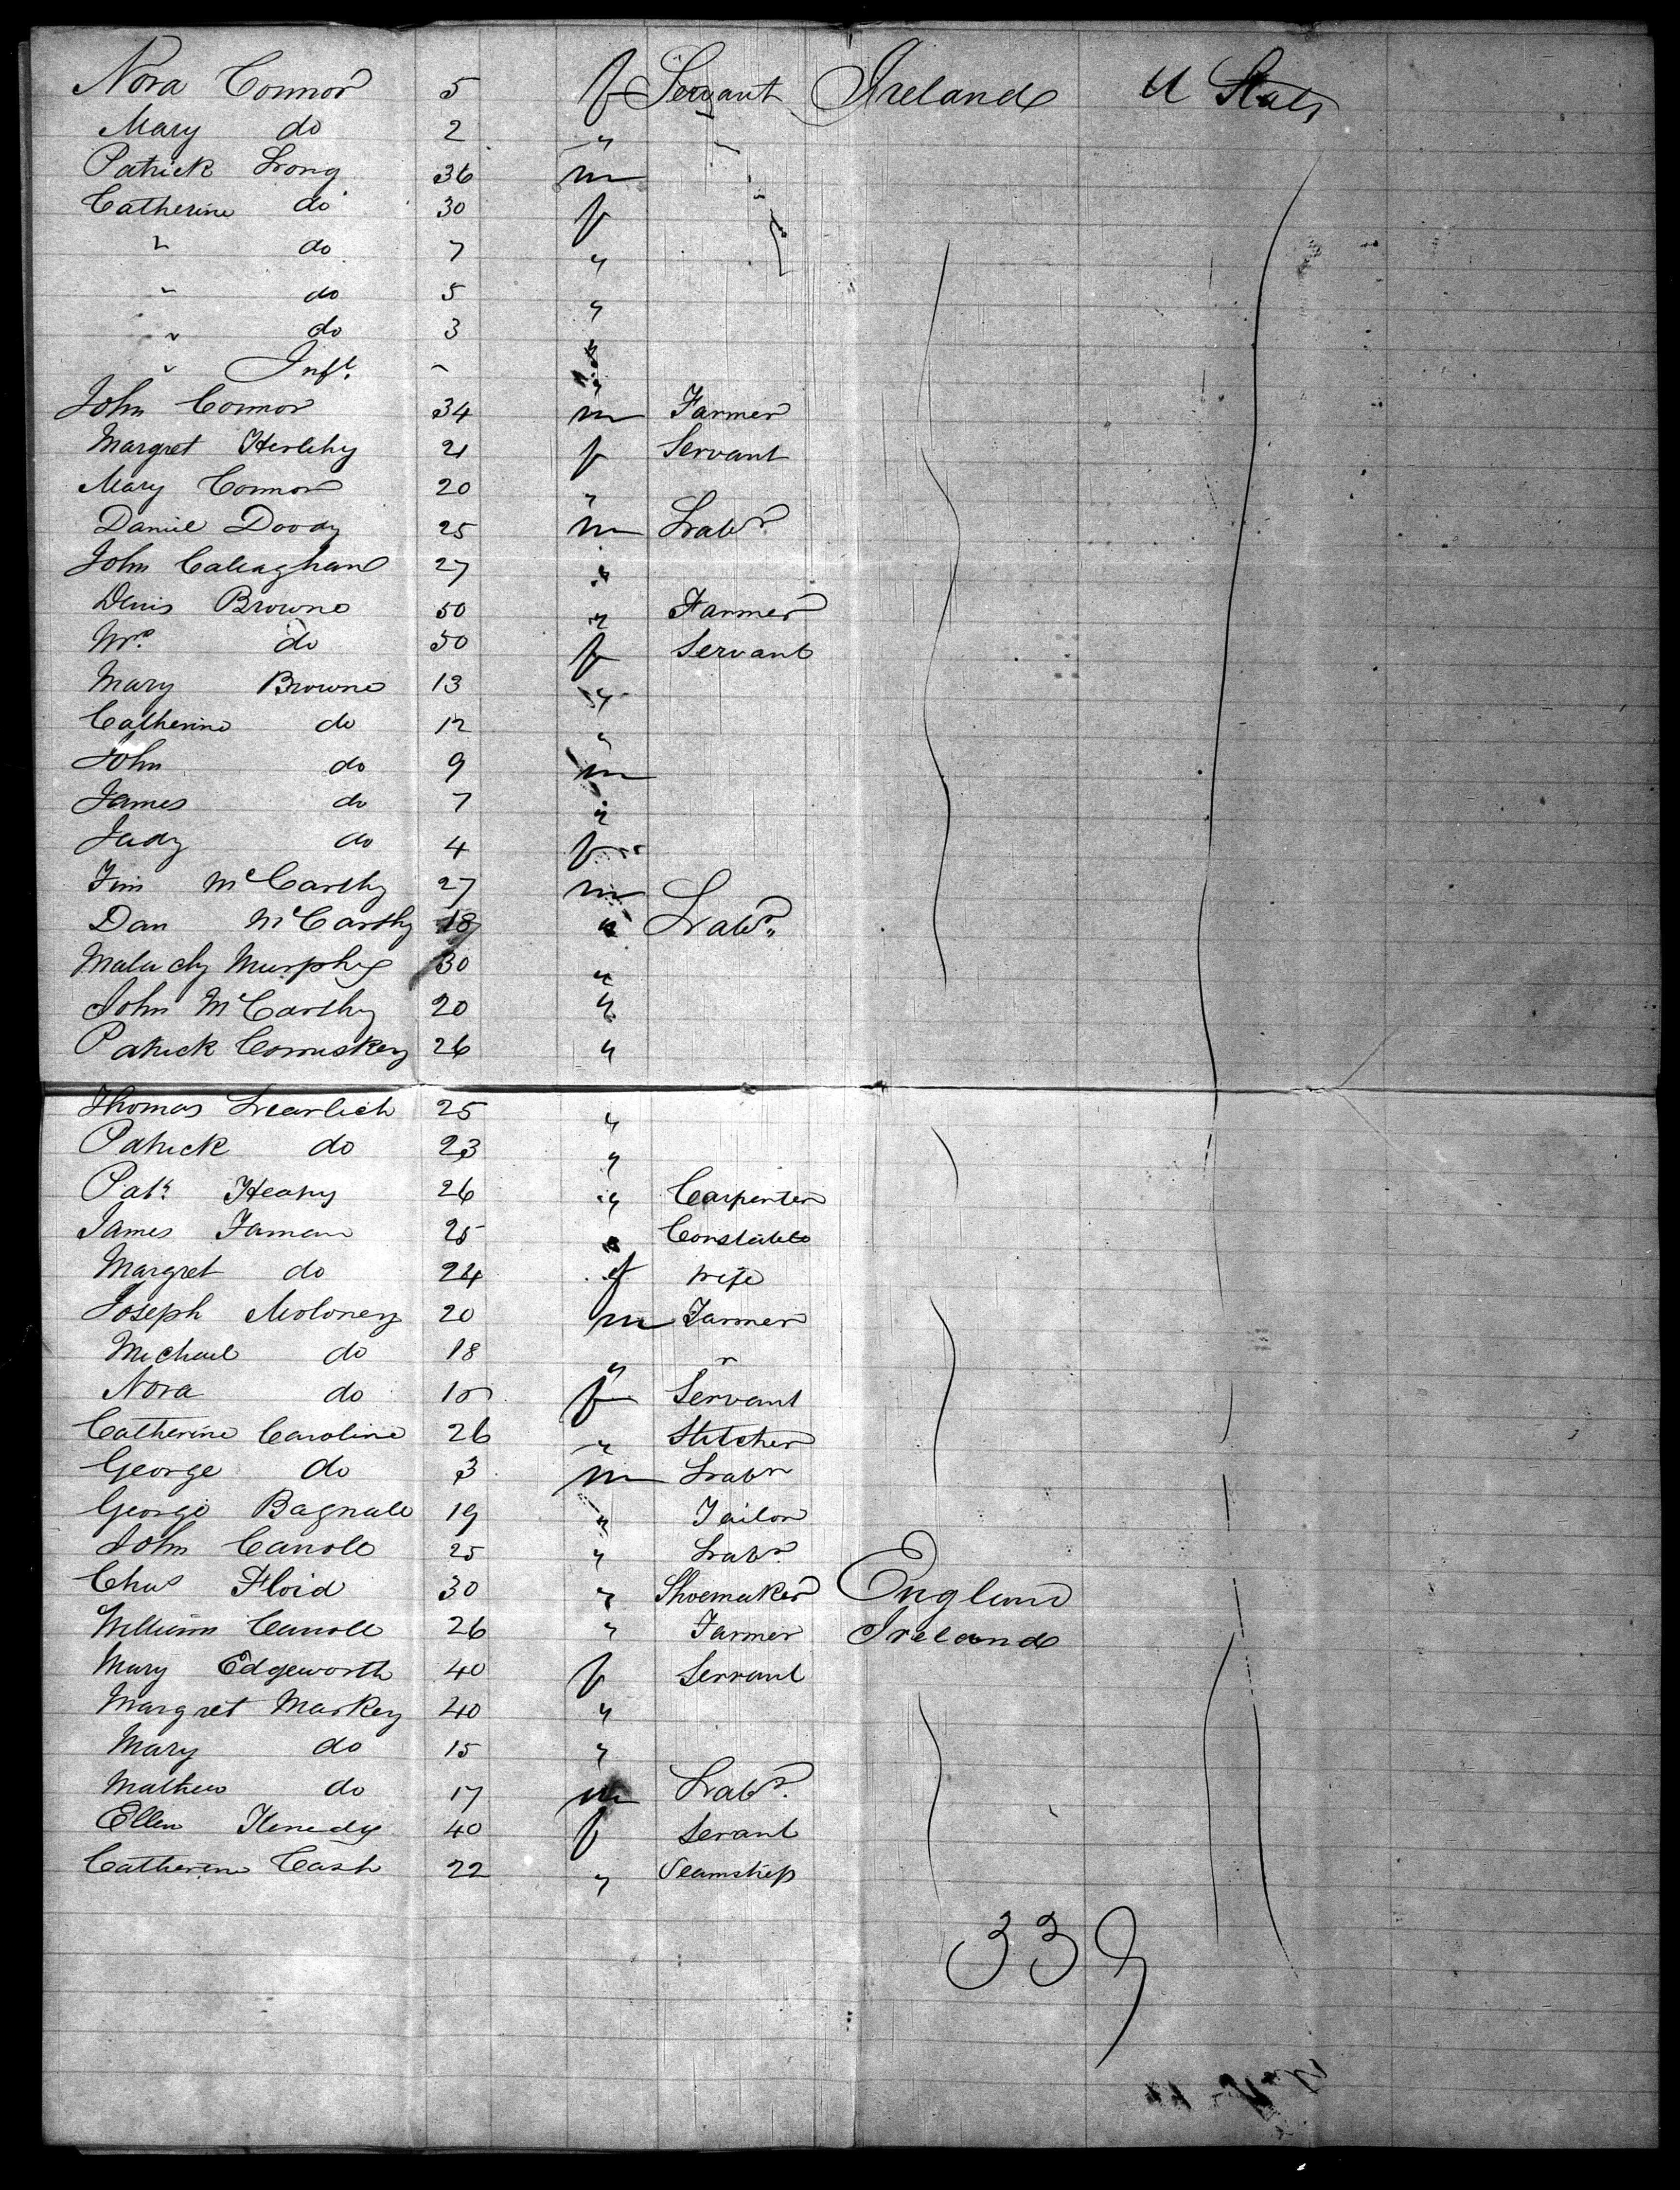 Nora Connor 5 f Servant Ireland U States
Mary do 2 " "
Patrick Long 36 m
Catherine do 30 f
" do 7 "
" do 5 "
" do 3 "
" Inft. - "
John Connor 34 m Farmer
Margret Herlihy 21 f Servant
Mary Connor 20 "
Daniel Doody 25 m Labr.
John Callaghan 27 "
Denis Browne 50 " Farmer
Mrs. do 50 f Servant
Mary Browne 13 "
Catherine do 12 "
John do 9 m
James do 7 "
Judy do 4 f
Tim McCarthy 27 m
Dan McCarthy 18 " Labr.
Malachy Murphy 30 "
John McCarthy 20 "
Patrick Comiskey 26 "
Thomas 25 "
Patrick do 23 "
Patk. Heany 26 " Carpenter
James 25 " Constable
Margret do 24 f Wife
Joseph Moloney 20 m Farmer
Michael do 18 " "
Nora do f Servant
Catherine Caroline 26 " Stitcher
George do 3 m Labr
George Bagnall 19 " Tailor
John Carroll 25 " Labr.
Chas Floid 30 " Shoemaker England
William Carroll 26 " Farmer Ireland
Mary Edgeworth 40 f Servant
Margret Markey 40 "
Mary do 15 "
Mathew do 17 m Labr.
Ellen Kenedy 40 f Servant
Catherine Cash 22 " Seamstress
339